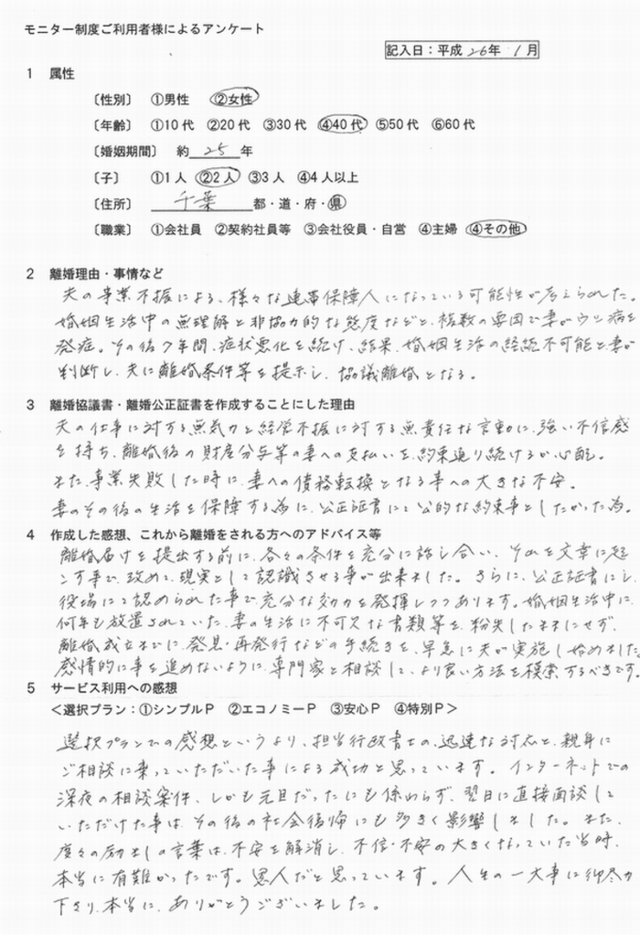 モニター制度ご利用者様によるアンケート
記入日：平成 26年 1月
1 属性
〔性別〕 ①男性 ②女性
〔年齢〕 ①10代 ②20代 ③30代 ④40代 ⑤50代 ⑥60代
〔婚姻期間〕 約 25 年
〔子〕 ①1人 ②2人 ③3人 ④4人以上
〔住所〕 千葉 都・道・府・県
〔職業〕 ①会社員 ②契約社員等 ③会社役員・自営 ④主婦 ④その他
2 離婚理由・事情など
夫の事業不振による、様々な連帯保障人になっている可能性が考えられた。
婚姻生活中の無理解と非協力的な態度などと、複数の要因で妻がウツ病を
発症。その後7年間、症状悪化を続け、結果、婚姻生活の継続不可能と妻が
判断し、夫に離婚条件等を提示し、協議離婚となる。
3 離婚協議書・離婚公正証書を作成することにした理由
夫の仕事に対する無気力と経営不振に対する無責任な言動に、強い不信感
を持ち、離婚後の財産分与等の妻への支払いを、約束通り続けるか心配。
また、事業失敗した時に、妻への債務転換となる事への大きな不安。
妻のその後の生活を保障する為に、公正証書にて公的な約束事としたかった為。
4 作成した感想、これから離婚をされる方へのアドバイス等
離婚届けを提出する前に、各々の条件を充分に話し合い、それを文章に起
こす事で、改めて、現実として認識させる事が出来ました。さらに、公正証書にし、
役場にて認められた事で、充分な効力を発揮しつつあります。婚姻生活中に、
何年も放置されていた、妻の生活に不可欠な書類等を、紛失したままにせず、
離婚成立までに、発見・再発行などの手続きを、早急に夫が実施し始めました。
感情的に事を進めないように、専門家と相談して、より良い方法を模索するべきです。
5 サービス利用への感想
＜選択プラン：①シンプルＰ ②エコノミーＰ ③安心Ｐ ④特別Ｐ＞
選択プランでの感想というより、担当行政書士の、迅速な対応と、親身に
ご相談に乗っていただいた事による成功と思っています。インターネットでの
深夜の相談案件、しかも元旦だったにも係わらず、翌日に直接面談して
いただけた事は、その後の社会復帰にも多きく影響しました。また、
度々の励ましの言葉は、不安を解消し、不信・不安の大きくなっていた当時、
本当に有難かったです。恩人だと思っています。人生の一大事に御尽力
下さり、本当に、ありがとうございました。